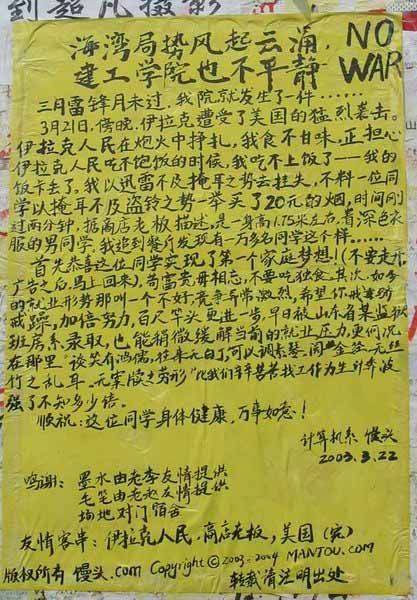 到超凡摄影
海湾局势风起云涌，
建工学院也不平静
NO
WAR
三月雷锋月未过，我院就发生了一件……
3月21日，傍晚，伊拉克遭受了美国的猛烈袭击。
伊拉克人民在炮火中挣扎，我食不甘味，正担心
伊拉克人民吃不饱饭的时候，我吃不上饭了——我的
饭卡丢了，我以迅雷不及掩耳之势去挂失，不料一位同
学以掩耳不及盗铃之势一举买了20元的烟，时间刚
过两分钟，据商店老板描述，是一身高1.75米左右，着深色衣
服的男同学，我追到餐厅发现有一万多名同学这个样……
首先恭喜这位同学实现了第一个家庭梦想！（不要走开，
广告之后，马上回来），苟富贵毋相忘，不要吃独食。其次，如今
的就业形势那叫一个不好，竞争异常激烈，希望你戒骄
戒躁，加倍努力，百尺竿头更进一步，早日被山东省某监狱
班房系录取，也能稍微缓解当前的就业压力，更何况
在那里“谈笑有鸿儒，往来无白丁，可以调素琴，阅金经，无丝
竹之乱耳，无案牍之劳形”比我们辛辛苦苦找工作为生计奔波
强了不知多少倍。
顺祝：这位同学身体健康，万事如意！
计算机系 馒头
2003.3.22
鸣谢：墨水由老李友情提供
毛笔由老 友情提供
场地对门宿舍
友情客串：伊拉克人民，商店老板，美国（完）
版权所有 馒头.com Copyright © 2003-2004 MANTOU.COM
转载请注明出处